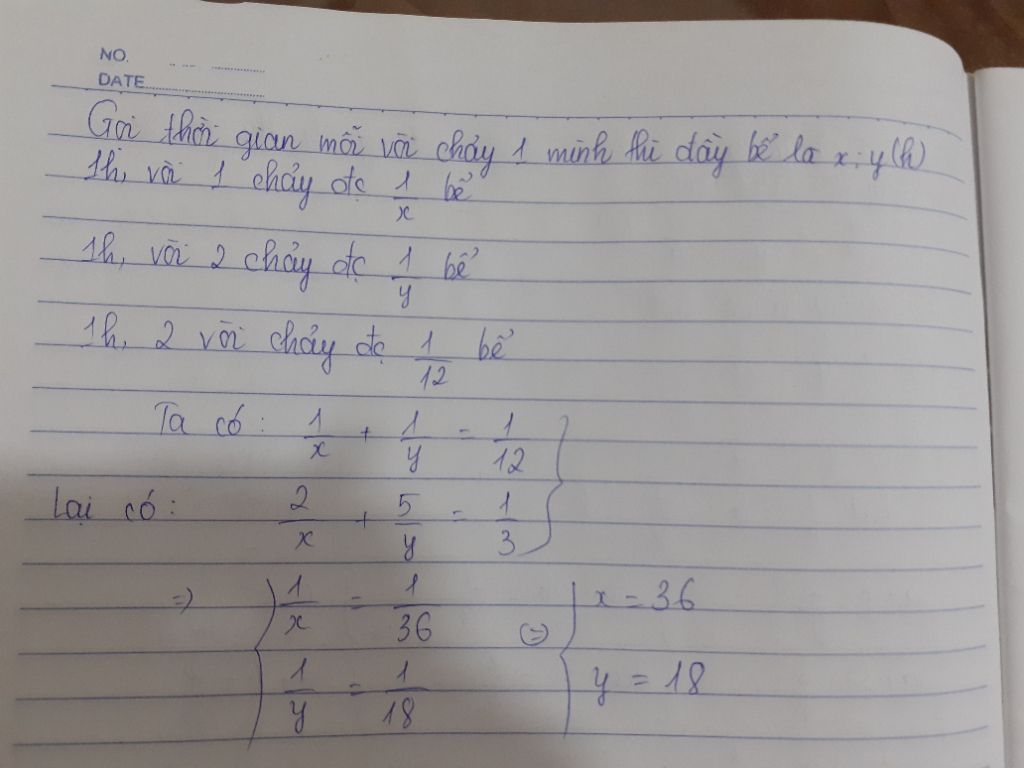 NO.
DATE
Gọi thời gian mỗi vòi chảy 1 mình thì đầy bể là x; y (h)
1h, vòi 1 chảy đc 1/x bể
1h, vòi 2 chảy đc 1/y bể
1h, 2 vòi chảy đc 1/12 bể
Ta có: 1/x + 1/y = 1/12 }
Lại có: 2/x + 5/y = 1/3
=> { 1/x = 1/36 (=) { x = 36
1/y = 1/18 y = 18